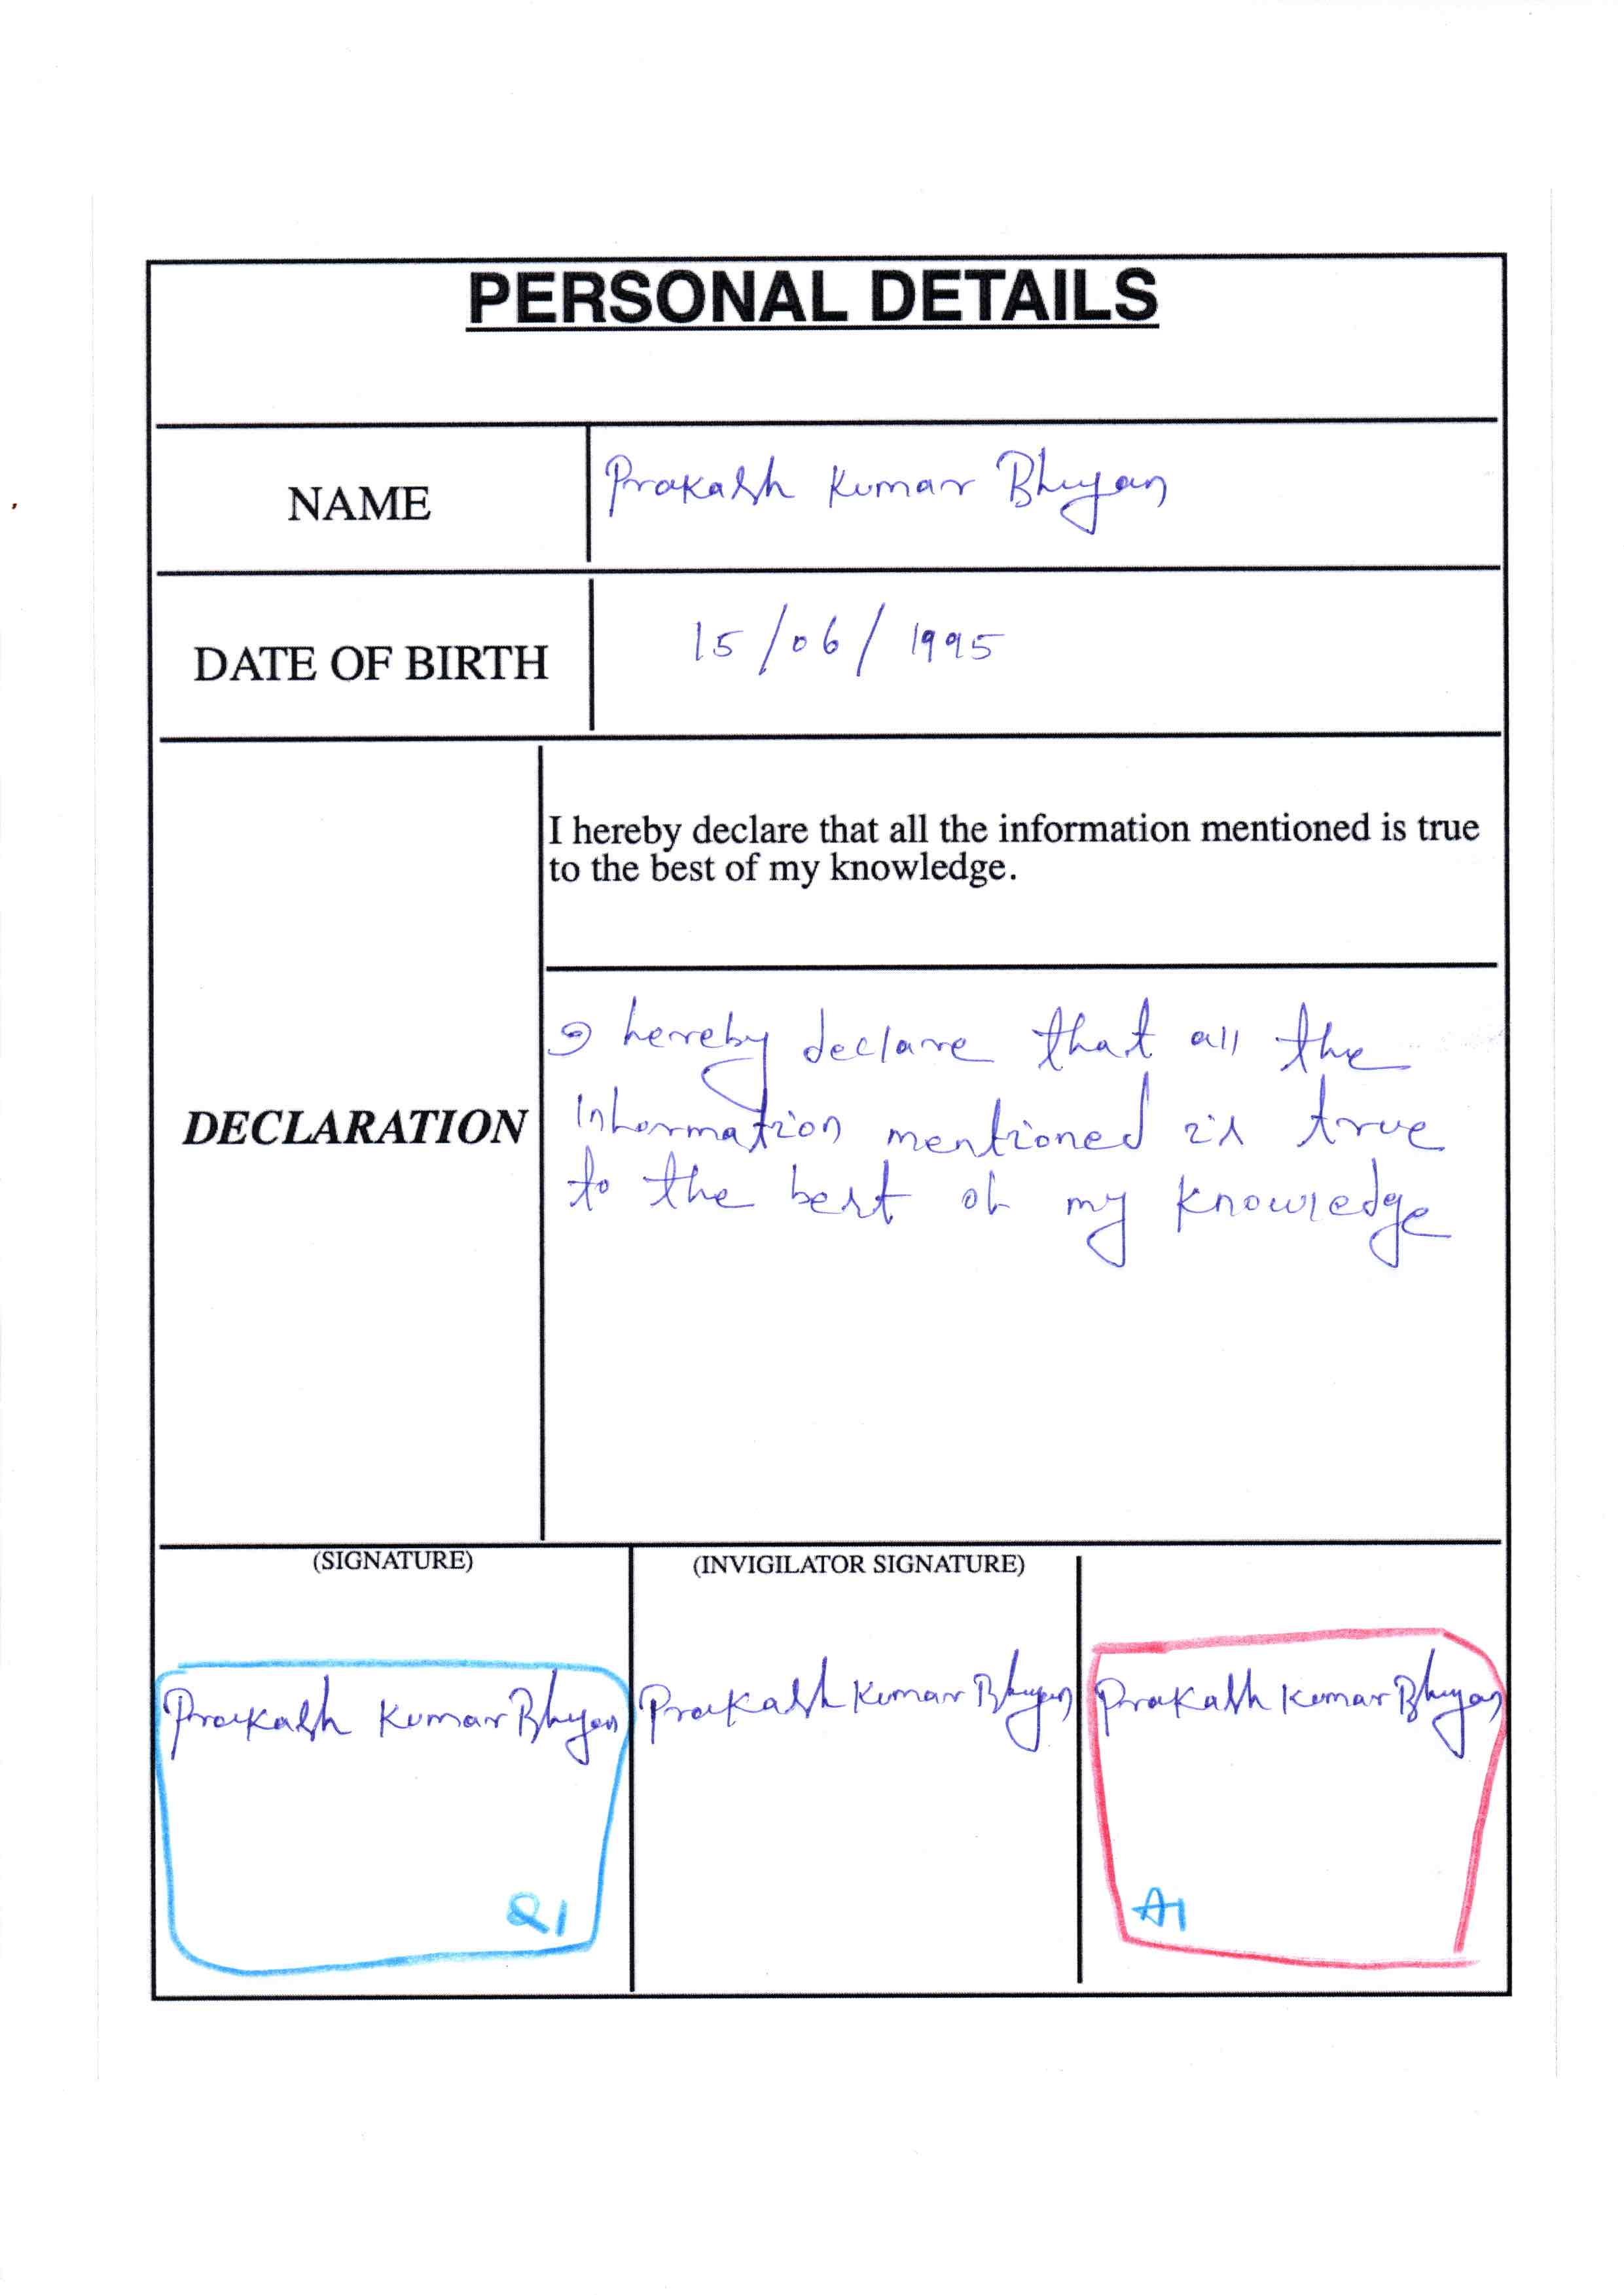 PERSONAL DETAILS
NAME
Prakash Kumar Bhuyan
DATE OF BIRTH
15/06/1995
DECLARATION
I hereby declare that all the information mentioned is true
to the best of my knowledge.
I hereby declare that all the
information mentioned is true
to the best of my knowledge
(SIGNATURE)
Prakash Kumar Bhuyan
Q1
(INVIGILATOR SIGNATURE)
Prakash Kumar Bhuyan
Prakash Kumar Bhuyan
A1